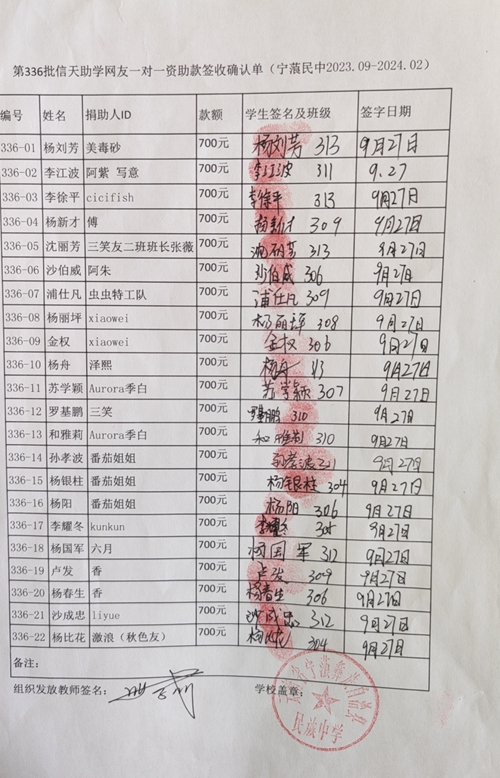 第336批信天助学网友一对一资助款签收确认单（宁蒗民中2023.09-2024.02）
编号 姓名 捐助人ID 款额 学生签名及班级 签字日期
336-01 杨刘芳 美毒砂 700元 杨刘芳 313 9月27日
336-02 李江波 阿紫 写意 700元 李江波 311 9.27
336-03 李徐平 cicifish 700元 李徐平 313 9月27日
336-04 杨新才 傅 700元 杨新才 309 9月27日
336-05 沈丽芳 三笑友二班班长张薇 700元 沈丽芳 313 9月27日
336-06 沙伯威 阿朱 700元 沙伯威 306 9月27日
336-07 浦仕凡 虫虫特工队 700元 浦仕凡 309 9月27日
336-08 杨丽坪 xiaowei 700元 杨丽坪 308 9月27日
336-09 金权 xiaowei 700元 金权 306 9月27日
336-10 杨舟 泽熙 700元 杨舟 9月27日
336-11 苏学颖 Aurora季白 700元 苏学颖 307 9月27日
336-12 罗基鹏 三笑 700元 罗基鹏 310 9月27日
336-13 和雅莉 Aurora季白 700元 和雅莉 310 9月27日
336-14 孙孝波 番茄姐姐 700元 孙孝波 9月27日
336-15 杨银柱 番茄姐姐 700元 杨银柱 304 9月27日
336-16 杨阳 番茄姐姐 700元 杨阳 306 9月27日
336-17 李耀冬 kunkun 700元 李耀冬 9月27日
336-18 杨国军 六月 700元 杨国军 312 9月27日
336-19 卢发 香 700元 卢发 309 9月27日
336-20 杨春生 香 700元 杨春生 306 9月27日
336-21 沙成忠 liyue 700元 沙成忠 312 9月27日
336-22 杨比花 激浪（秋色友） 700元 杨比花 304 9月27日
备注：
组织发放教师签名： 学校盖章：
民族中学